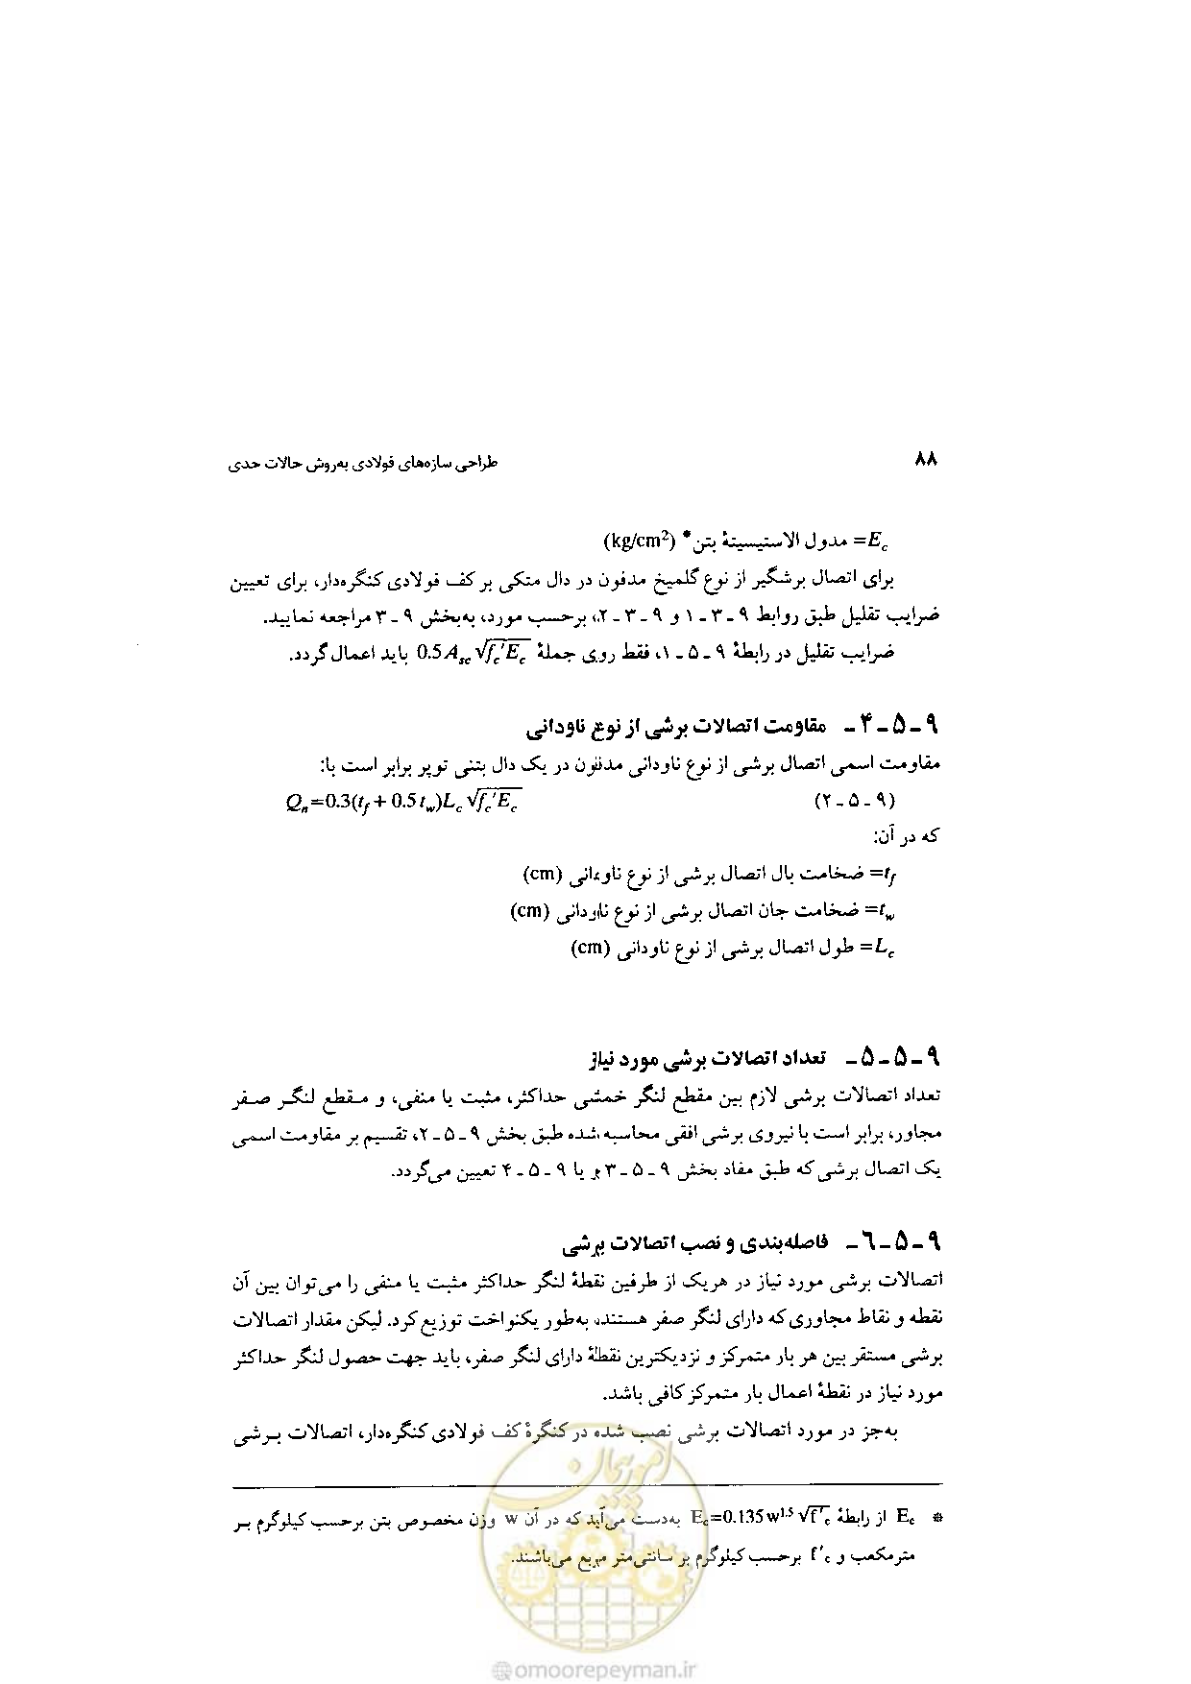 ۸۸
طراحی سازه‌های فولادی به‌روش حالات حدی
E_c= مدول الاستیسیتهٔ بتن* (kg/cm²)
برای اتصال برشگیر از نوع گلمیخ مدفون در دال متکی بر کف فولادی کنگره‌دار، برای تعیین
ضرایب تقلیل طبق روابط ۹ ـ ۳ ـ ۱ و ۹ ـ ۳ ـ ۲، برحسب مورد، به‌بخش ۹ ـ ۳ مراجعه نمایید.
ضرایب تقلیل در رابطهٔ ۹ ـ ۵ ـ ۱، فقط روی جملهٔ 0.5A_sc√(f_c′E_c) باید اعمال گردد.
۹ ـ ۵ ـ ۴ ـ مقاومت اتصالات برشی از نوع ناودانی
مقاومت اسمی اتصال برشی از نوع ناودانی مدفون در یک دال بتنی توپر برابر است با:
(۹ ـ ۵ ـ ۲) Q_n=0.3(t_f + 0.5 t_w)L_c√(f_c′E_c)
که در آن:
t_f= ضخامت بال اتصال برشی از نوع ناودانی (cm)
t_w= ضخامت جان اتصال برشی از نوع ناودانی (cm)
L_c= طول اتصال برشی از نوع ناودانی (cm)
۹ ـ ۵ ـ ۵ ـ تعداد اتصالات برشی مورد نیاز
تعداد اتصالات برشی لازم بین مقطع لنگر خمشی حداکثر، مثبت یا منفی، و مقطع لنگر صفر
مجاور، برابر است با نیروی برشی افقی محاسبه شده طبق بخش ۹ ـ ۵ ـ ۲، تقسیم بر مقاومت اسمی
یک اتصال برشی که طبق مفاد بخش ۹ ـ ۵ ـ ۳ و یا ۹ ـ ۵ ـ ۴ تعیین می‌گردد.
۹ ـ ۵ ـ ۶ ـ فاصله‌بندی و نصب اتصالات برشی
اتصالات برشی مورد نیاز در هریک از طرفین نقطهٔ لنگر حداکثر مثبت یا منفی را می‌توان بین آن
نقطه و نقاط مجاوری که دارای لنگر صفر هستند، به‌طور یکنواخت توزیع کرد. لیکن مقدار اتصالات
برشی مستقر بین هر بار متمرکز و نزدیکترین نقطهٔ دارای لنگر صفر، باید جهت حصول لنگر حداکثر
مورد نیاز در نقطهٔ اعمال بار متمرکز کافی باشد.
به‌جز در مورد اتصالات برشی نصب شده در کنگرهٔ کف فولادی کنگره‌دار، اتصالات برشی
* E_c از رابطهٔ E_c=0.135w^1.5√f′_c به‌دست می‌آید که در آن w وزن مخصوص بتن برحسب کیلوگرم بر
مترمکعب و f′_c برحسب کیلوگرم بر سانتی‌متر مربع می‌باشند.
امور پیمان
@omoorepeyman.ir